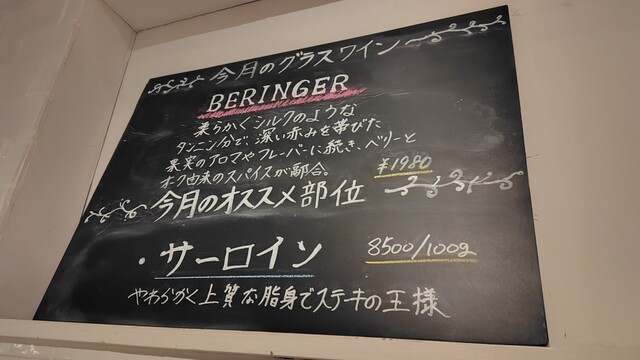 今月のグラスワイン
BERINGER
柔らかくシルクのような
タンニン分で、深い赤みを帯びた
果実のアロマやフレーバーに続き、ベリーと
オーク由来のスパイスが融合。
¥1980
今月のオススメ部位
・サーロイン
8500/100g
やわらかく上質な脂身でステーキの王様